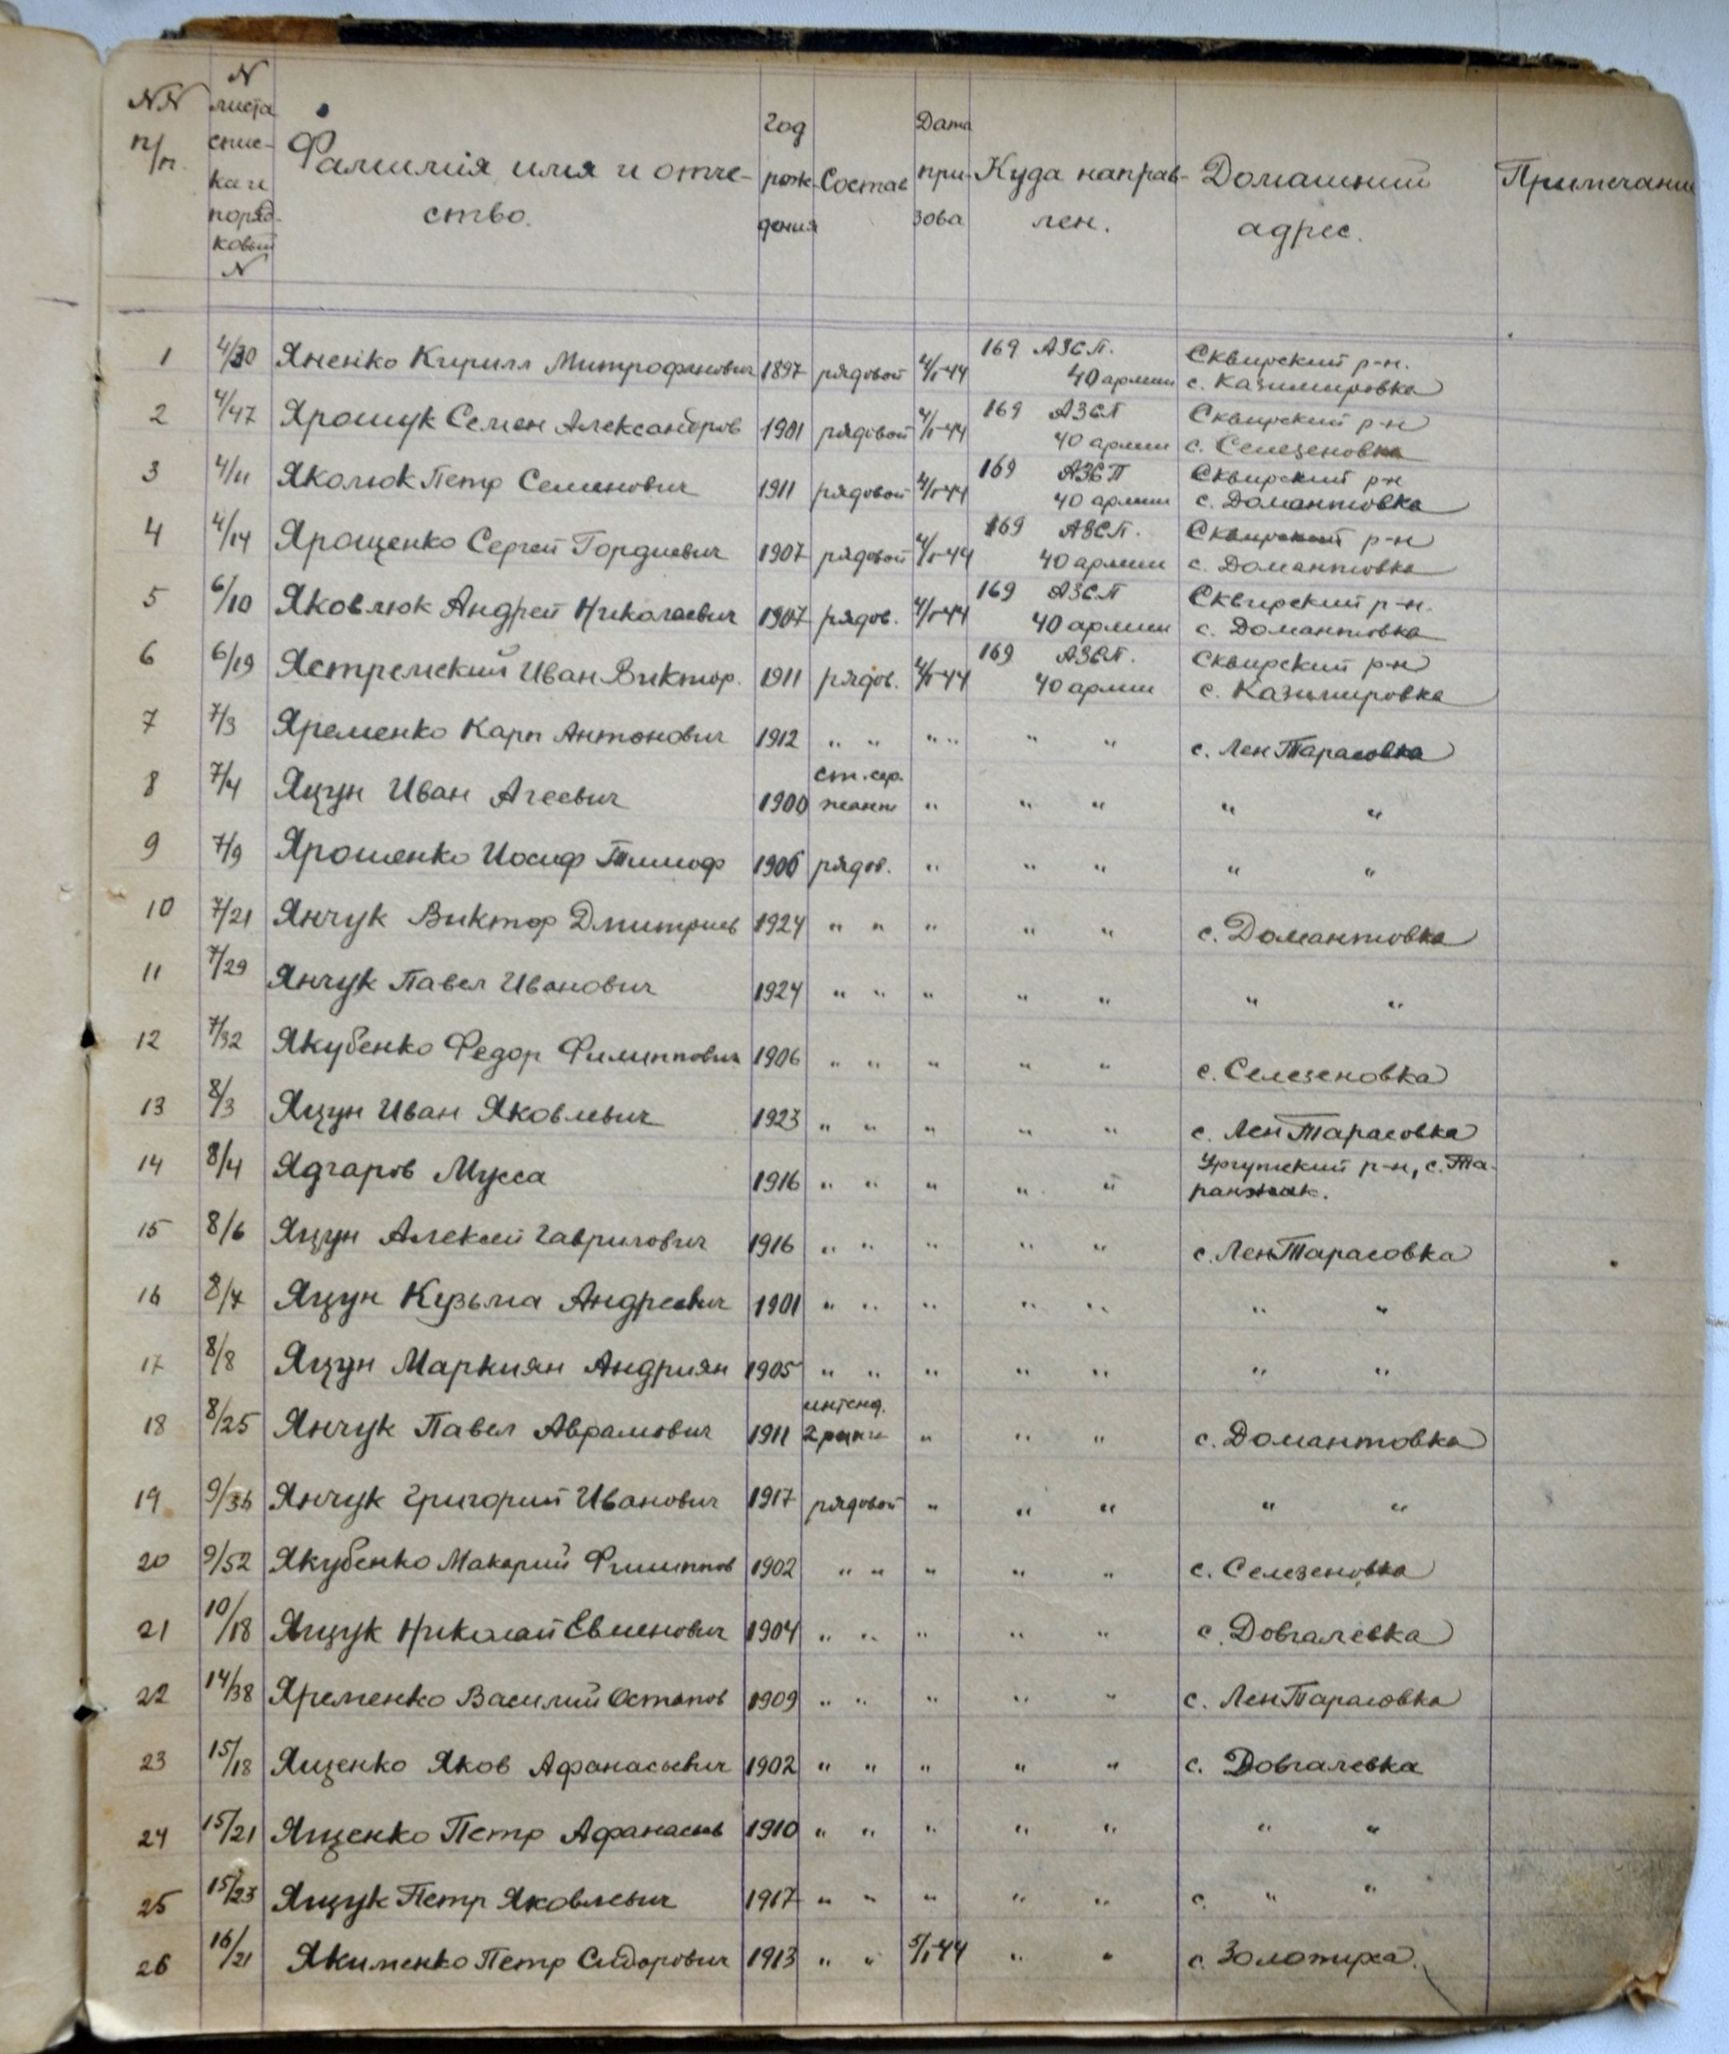 NN п/п. | N листа спис- ка и поряд- ковый N | Фамилия имя и отче- ство. | Год рож- дения | Состав | Дата при- зова | Куда направ- лен. | Домашний адрес. | Примечание
1 | 4/30 | Яненко Кирилл Митрофанович | 1897 | рядовой | 4/I-44 | 169 АЗСП. 40 армии | Сквирский р-н. с. Казимировка
2 | 4/47 | Ярошук Семен Александров | 1901 | рядовой | 4/I-44 | 169 АЗСП 40 армии | Сквирский р-н с. Селезеновка
3 | 4/11 | Яколюк Петр Семенович | 1911 | рядовой | 4/I-44 | 169 АЗСП 40 армии | Сквирский р-н с. Домантовка
4 | 4/14 | Ярощенко Сергей Гордиевич | 1907 | рядовой | 4/I-44 | 169 АЗСП. 40 армии | Сквирский р-н с. Домантовка
5 | 6/10 | Яковлюк Андрей Николаевич | 1907 | рядов. | 4/I-44 | 169 АЗСП 40 армии | Сквирский р-н. с. Домантовка
6 | 6/19 | Ястремский Иван Виктор. | 1911 | рядов. | 4/I-44 | 169 АЗСП. 40 армии | Сквирский р-н с. Казимировка
7 | 7/3 | Яременко Карп Антонович | 1912 | " " | " " | " " | с. ЛенТарасовка
8 | 7/4 | Яцун Иван Агеевич | 1900 | ст. сер- жант | " | " " | " "
9 | 7/9 | Ярошенко Иосиф Тимоф | 1906 | рядов. | " | " " | " "
10 | 7/21 | Янчук Виктор Дмитриев | 1924 | " " | " | " " | с. Домантовка
11 | 7/29 | Янчук Павел Иванович | 1924 | " " | " | " " | " "
12 | 7/32 | Якубенко Федор Филиппович | 1906 | " " | " | " " | с. Селезеновка
13 | 8/3 | Яцун Иван Яковлевич | 1923 | " " | " | " " | с. ЛенТарасовка
14 | 8/4 | Ядгаров Мусса | 1916 | " " | " | " " | Ургутский р-н, с. Та- ранжак.
15 | 8/6 | Яцун Алексей Гаврилович | 1916 | " " | " | " " | с. ЛенТарасовка
16 | 8/7 | Яцун Кузьма Андреевич | 1901 | " " | " | " " | " "
17 | 8/8 | Яцун Маркиян Андриян | 1905 | " " | " | " " | " "
18 | 8/25 | Янчук Павел Аврамович | 1911 | интенд. 2 ранга | " | " " | с. Домантовка
19 | 9/36 | Янчук Григорий Иванович | 1917 | рядовой | " | " " | " "
20 | 9/52 | Якубенко Макарий Филиппов | 1902 | " " | " | " " | с. Селезеновка
21 | 10/18 | Ящук Николай Евменович | 1904 | " " | " | " " | с. Довгалевка
22 | 14/38 | Яременко Василий Остапов | 1909 | " " | " | " " | с. ЛенТарасовка
23 | 15/18 | Ященко Яков Афанасьевич | 1902 | " " | " | " " | с. Довгалевка
24 | 15/21 | Ященко Петр Афанасьев | 1910 | " " | " | " " | " "
25 | 15/23 | Ящук Петр Яковлевич | 1917 | " " | " | " " | с. " "
26 | 16/21 | Якименко Петр Сидорович | 1913 | " " | 5/I-44 | " " | с. Золотуха.